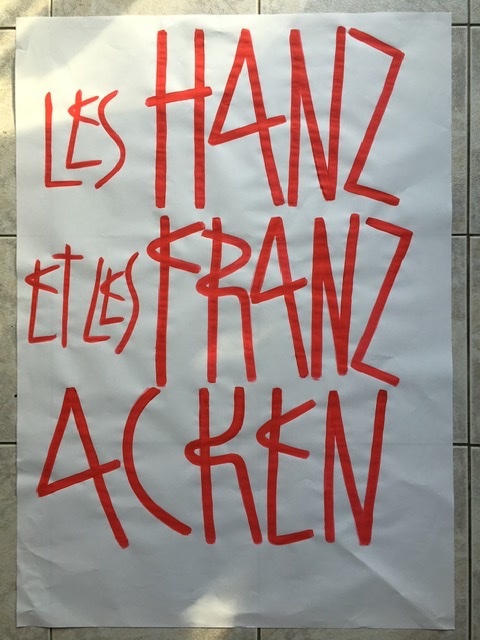 LES HANZ
ET LES FRANZ
ACKEN